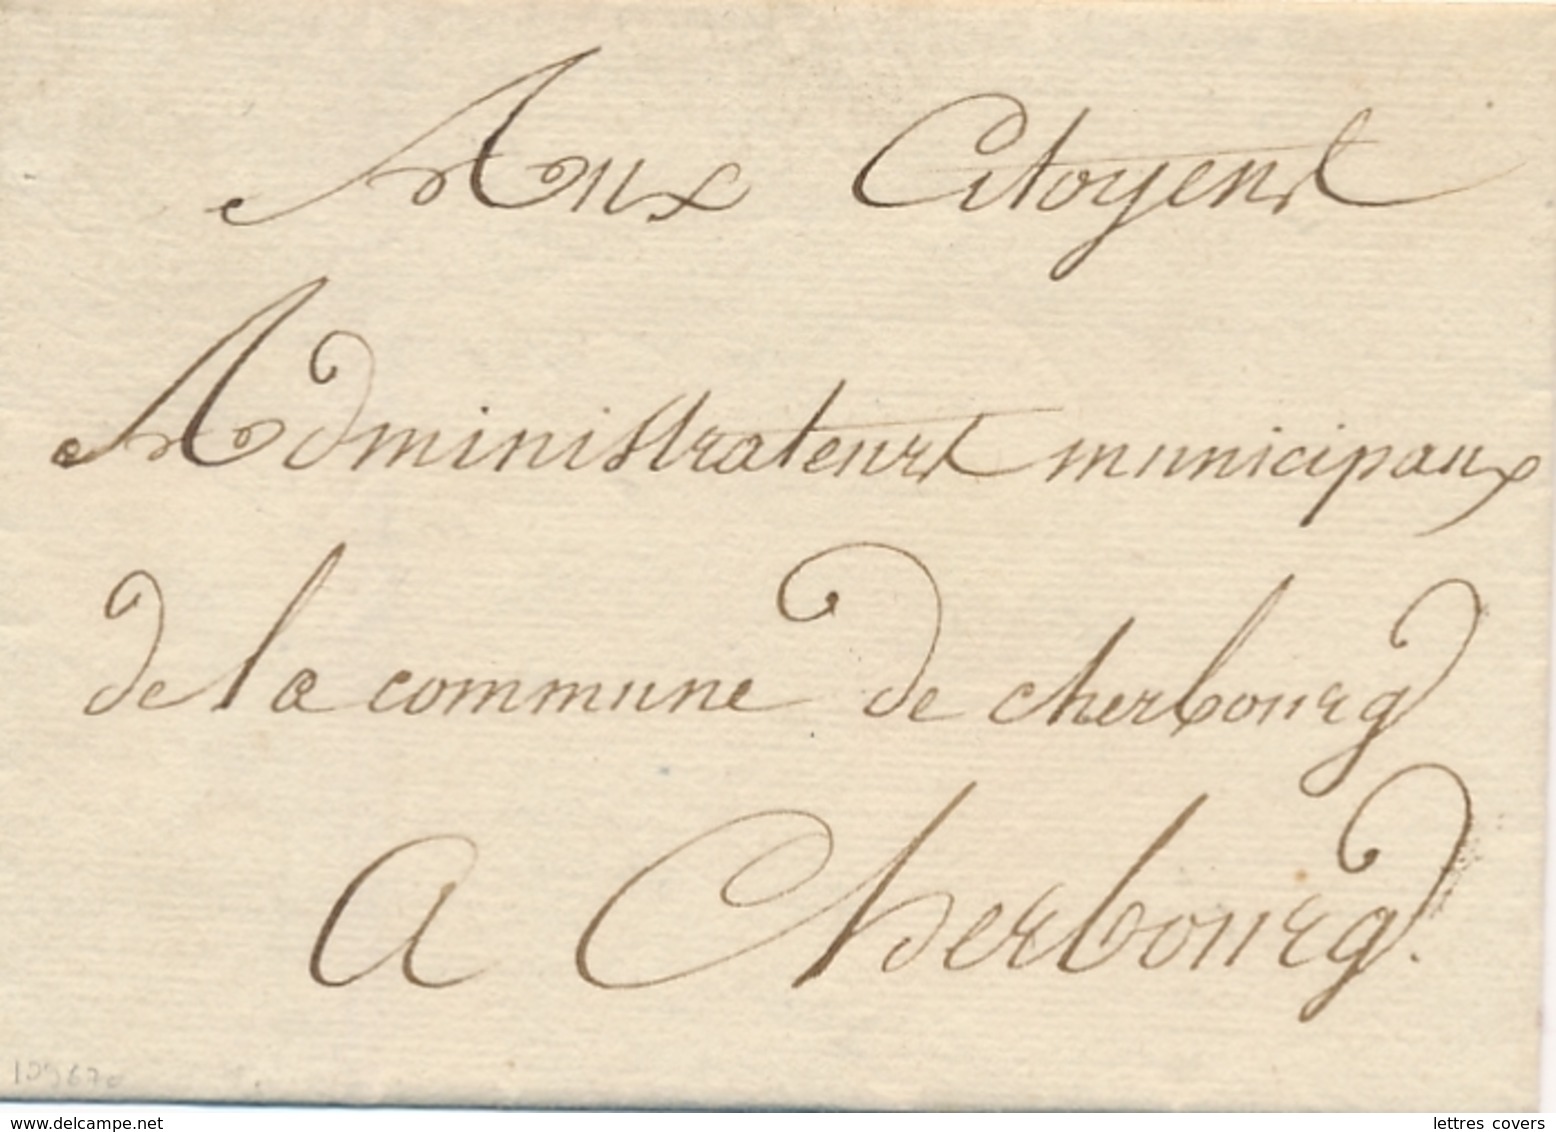 Aux Citoyens
Administrateurs municipaux
de la commune de cherbourg
A Cherbourg.
delcampe.net
lettres covers